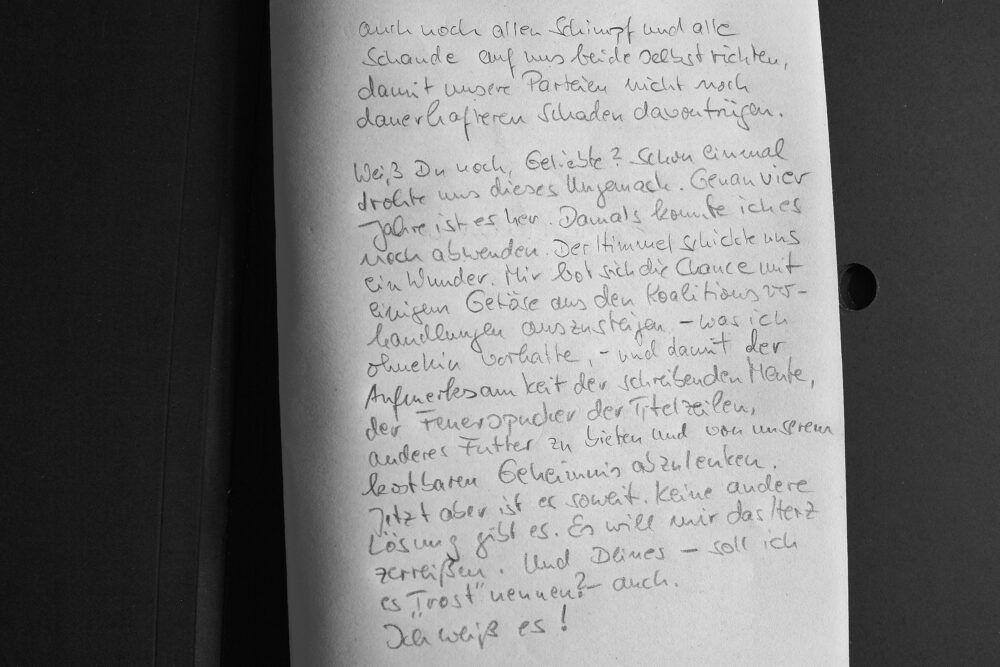 auch noch allen Schimpf und alle
Schande auf uns beide selbst richten,
damit unsere Parteien nicht noch
dauerhafteren Schaden davontrügen.
Weißt Du noch, Geliebte? Schon einmal
drohte uns dieses Ungemach. Genau vier
Jahre ist es her. Damals konnte ich es
noch abwenden. Der Himmel schickte uns
ein Wunder. Mir bot sich die Chance mit
einigem Getöse aus den Koalitionsver-
handlungen auszusteigen – was ich
ohnehin vorhatte, – und damit der
Aufmerksamkeit der schreibenden Meute,
der Feuerspucker der Titelzeilen,
anderes Futter zu bieten und von unserem
kostbaren Geheimnis abzulenken.
Jetzt aber ist es soweit. Keine andere
Lösung gibt es. Es will mir das Herz
zerreißen. Und Deines – soll ich
es „Trost" nennen? – auch.
Ich weiß es!